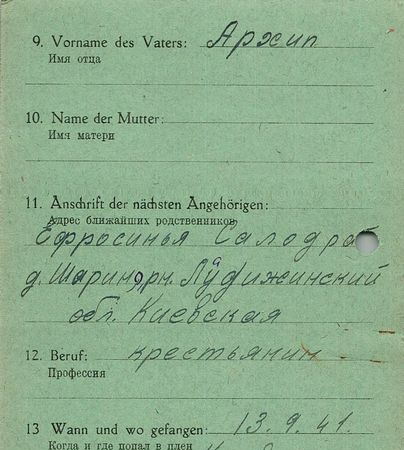 9. Vorname des Vaters: Архип
Имя отца
10. Name der Mutter:
Имя матери
11. Anschrift der nächsten Angehörigen:
Адрес ближайших родственников
Ефросинья
д.
обл. Киевская
12. Beruf: крестьянин
Профессия
13 Wann und wo gefangen: 13.9.41.
Когда и где попал в плен